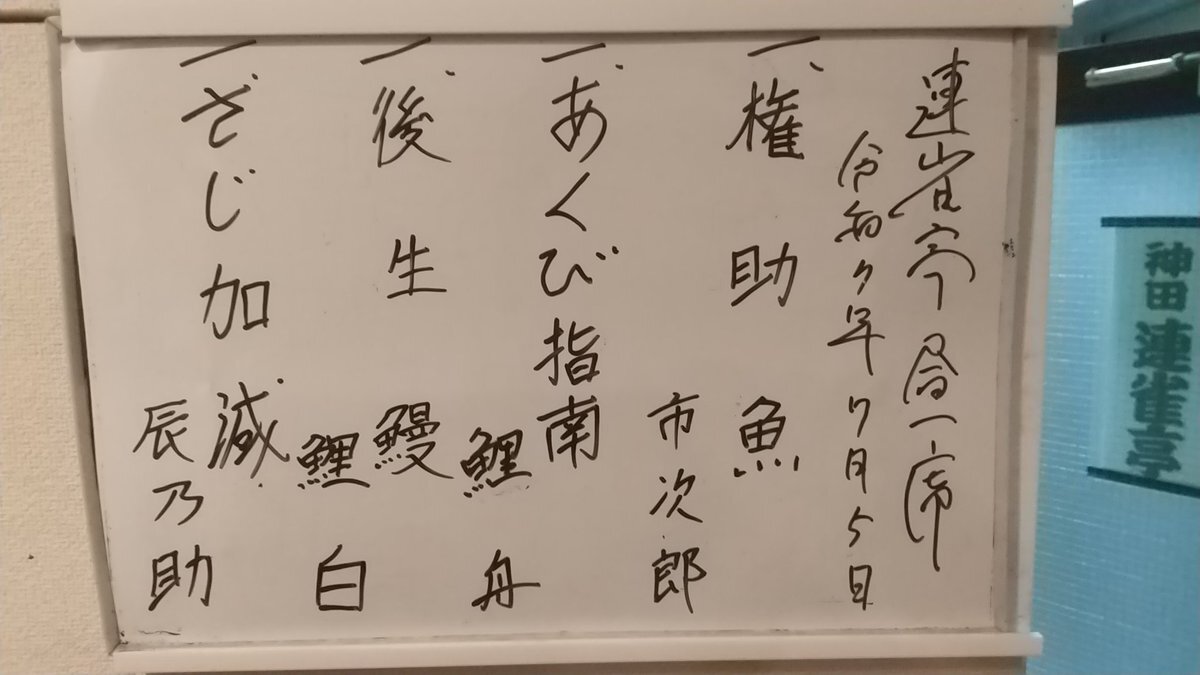 連雀亭昼席
令和7年7月5日
一、権助魚
市次郎
一、あくび指南
鯉舟
一、後生鰻
鯉白
一、さじ加減
辰乃助
神田
連雀亭